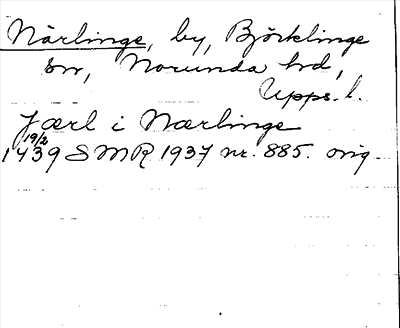 Närlinge, by, Björklinge
sn, Norunda hd,
Upps. l.
Jærl i Nærlinge
19/2
1439 SMR 1937 nr. 885. orig.